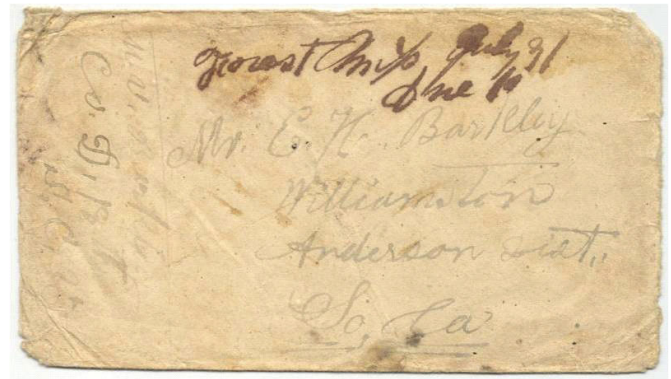 Forest Miss July 31
Due 10
Mr. E. H. Barkley
Williamston
Anderson Dist.,
So, Ca
Co. D,